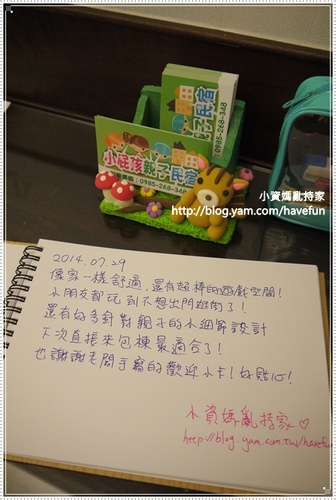 親子民宿
0985-268-348
小屁孩親子民宿
0985-268-348
小資媽亂持家
http://blog.yam.com/havefun
2014.07.29
像家一樣舒適，還有超棒的遊戲空間！
小朋友都玩到不想出門逛街了！
還有好多針對親子的小細節設計
下次直接來包棟最適合了！
也謝謝老闆手寫的歡迎小卡！好貼心！
小資媽亂持家♡
http://blog.yam.com.tw/havefun